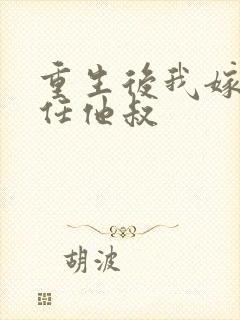 重生後我嫁
任他叔
胡波